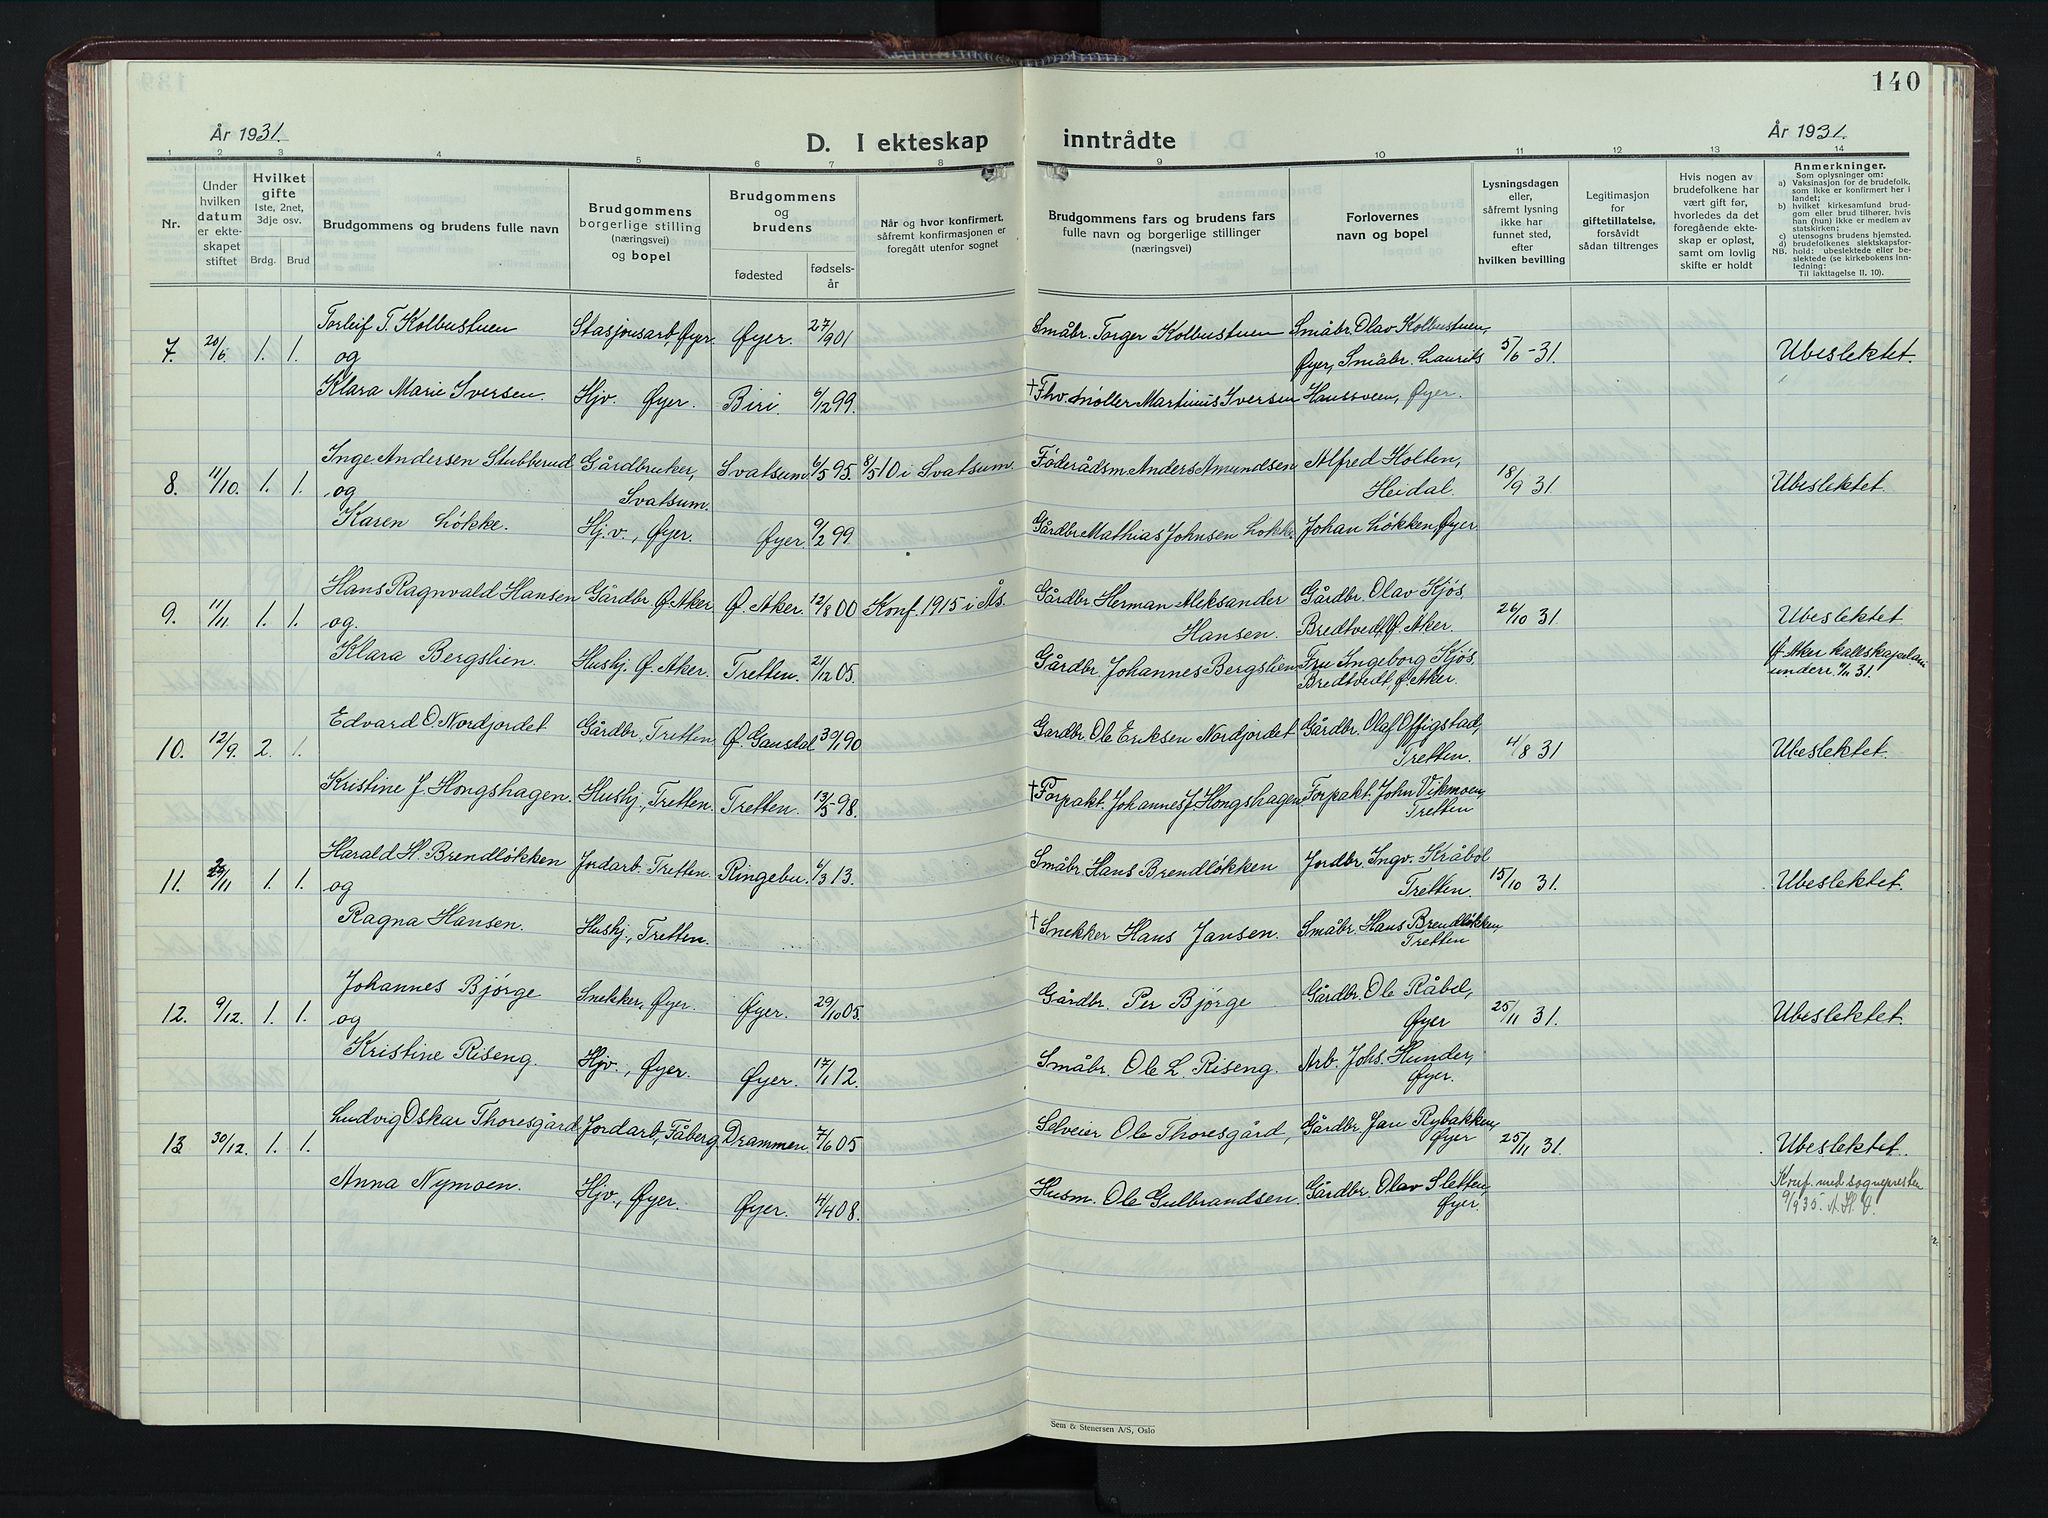 140
År 1931.
D. I ekteskap inntrådte
År 1931.
1 2 3 4 5 6 7 8 9 10 11 12 13 14
Nr.
Under hvilken datum er ekteskapet stiftet
Hvilket gifte
1ste, 2net, 3dje osv.
Brdg. Brud
Brudgommens og brudens fulle navn
Brudgommens borgerlige stilling (næringsvei) og bopel
Brudgommens og brudens
fødested
fødselsår
Når og hvor konfirmert, såfremt konfirmasjonen er foregått utenfor sognet
Brudgommens fars og brudens fars fulle navn og borgerlige stillinger (næringsvei)
Forlovernes navn og bopel
Lysningsdagen eller, såfremt lysning ikke har funnet sted, efter hvilken bevilling
Legitimasjon for giftetillatelse, forsåvidt sådan tiltrenges
Hvis nogen av brudefolkene har vært gift før, hvorledes da det foregående ekteskap er opløst, samt om lovlig skifte er holdt
Anmerkninger.
Som oplysninger om:
a) Vaksinasjon for de brudefolk, som ikke er konfirmert her i landet;
b) hvilket kirkesamfund brudgom eller brud tilhører, hvis han (hun) ikke er medlem av statskirken;
c) utensogns brudens hjemsted.
d) brudefolkenes slektskapsforhold: ubeslektede eller beslektede (se kirkebokens innledning:
NB. Til iakttagelse II. 10).
Torleif T. Kolbustuen Stasjonsarb, Øyer Øyer. 27/1 901 Småbr. Torger Kolbustuen Småbr. Olav Kolbustuen,
7. 20/6. 1. 1. og Øyer, Småbr. Laurits 5/6 - 31 Ubeslektet.
Klara Marie Iversen. Hjv. Øyer. Biri. 6/12 99. † Fhv. Møller Martinus Iversen Hansveen, Øyer.
Inge Andersen Stubberud Gårdbruker, Svatsum. 6/5 95. 8/5 10 i Svatsum. Føderådsm Anders Amundsen Alfred Holten,
8. 11/10. 1. 1. og Svatsum. Heidal. 18/9 31 Ubeslektet.
Karen Løkke. Hj.v., Øyer. Øyer. 9/2 99. Gårdbr Mathias Johnsen Løkke. Johan Løkken, Øyer
Hans Ragnvald Hansen Gårdbr. Ø. Aker Ø. Aker. 12/8 00 Konf. 1915 i Ås. Gårdbr Herman Aleksander Gårdbr. Olav Kjøs.
9. 11/11. 1. 1. og. Hansen. Bredtvedt, Ø. Aker. 26/10 31. Ubeslektet
Klara Bergslien. Hushj. Ø. Aker. Tretten. 21/12 05. Gårdbr. Johannes Bergslien Fru Ingeborg Kjøs. Ø. Aker kallskapelani
Bredtvedt Ø. Aker. underr. 31.
Edvard O. Nordjordet Gårdbr., Tretten Ø. Gausdal 30/1 90 Gardbr. Ole Eriksen Nordjordet Gårdbr. Olaf Offigstad,
10. 12/9. 2. 1. Tretten. 4/8 31 Ubeslektet.
Kristine J. Hongshagen. Hushj., Tretten. Tretten. 13/5 98. † Forpakt. Johannes J. Hongshagen Forpakt. John Vikmoen,
Tretten
Harald H. Brendløkken Jordarb. Tretten. Ringebu. 6/3 13. Småbr. Hans Brendløkken Jordbr. Ingv. Kråbøl
11. /11 1. 1. og Tretten. 15/10 31. Ubeslektet.
Ragna Hansen. Hushj., Tretten. † Snekker Hans Jansen. Småbr. Hans Brendløkken,
Tretten
Johannes Bjørge Snekker, Øyer. Øyer. 29/10 05. Gårdbr. Per Bjørge Gårdbr. Ole Råbel,
12. 9/12. 1. 1. og Øyer 25/11 31. Ubeslektet.
Kristine Riseng. Hjv., Øyer. Øyer. 17/1 12. Småbr. Ole L. Riseng. Arb. Johs. Hunder,
Øyer.
Ludvig Oskar Thoresgård Jordarb., Fåberg. Drammen. 7/6 05 Selveier Ole Thoresgård, Gårdbr. Jan Rybakken,
13 30/12. 1. 1. Øyer 25/11 31. Ubeslektet.
Anna Nymoen. Hjv., Øyer. Øyer. 4/4 08. Husm. Ole Gulbrandsen. Gårdbr. Olav Sletten, Konf. med sognepresten
Øyer. 9/9 35.
Sem & Stenersen A/S, Oslo